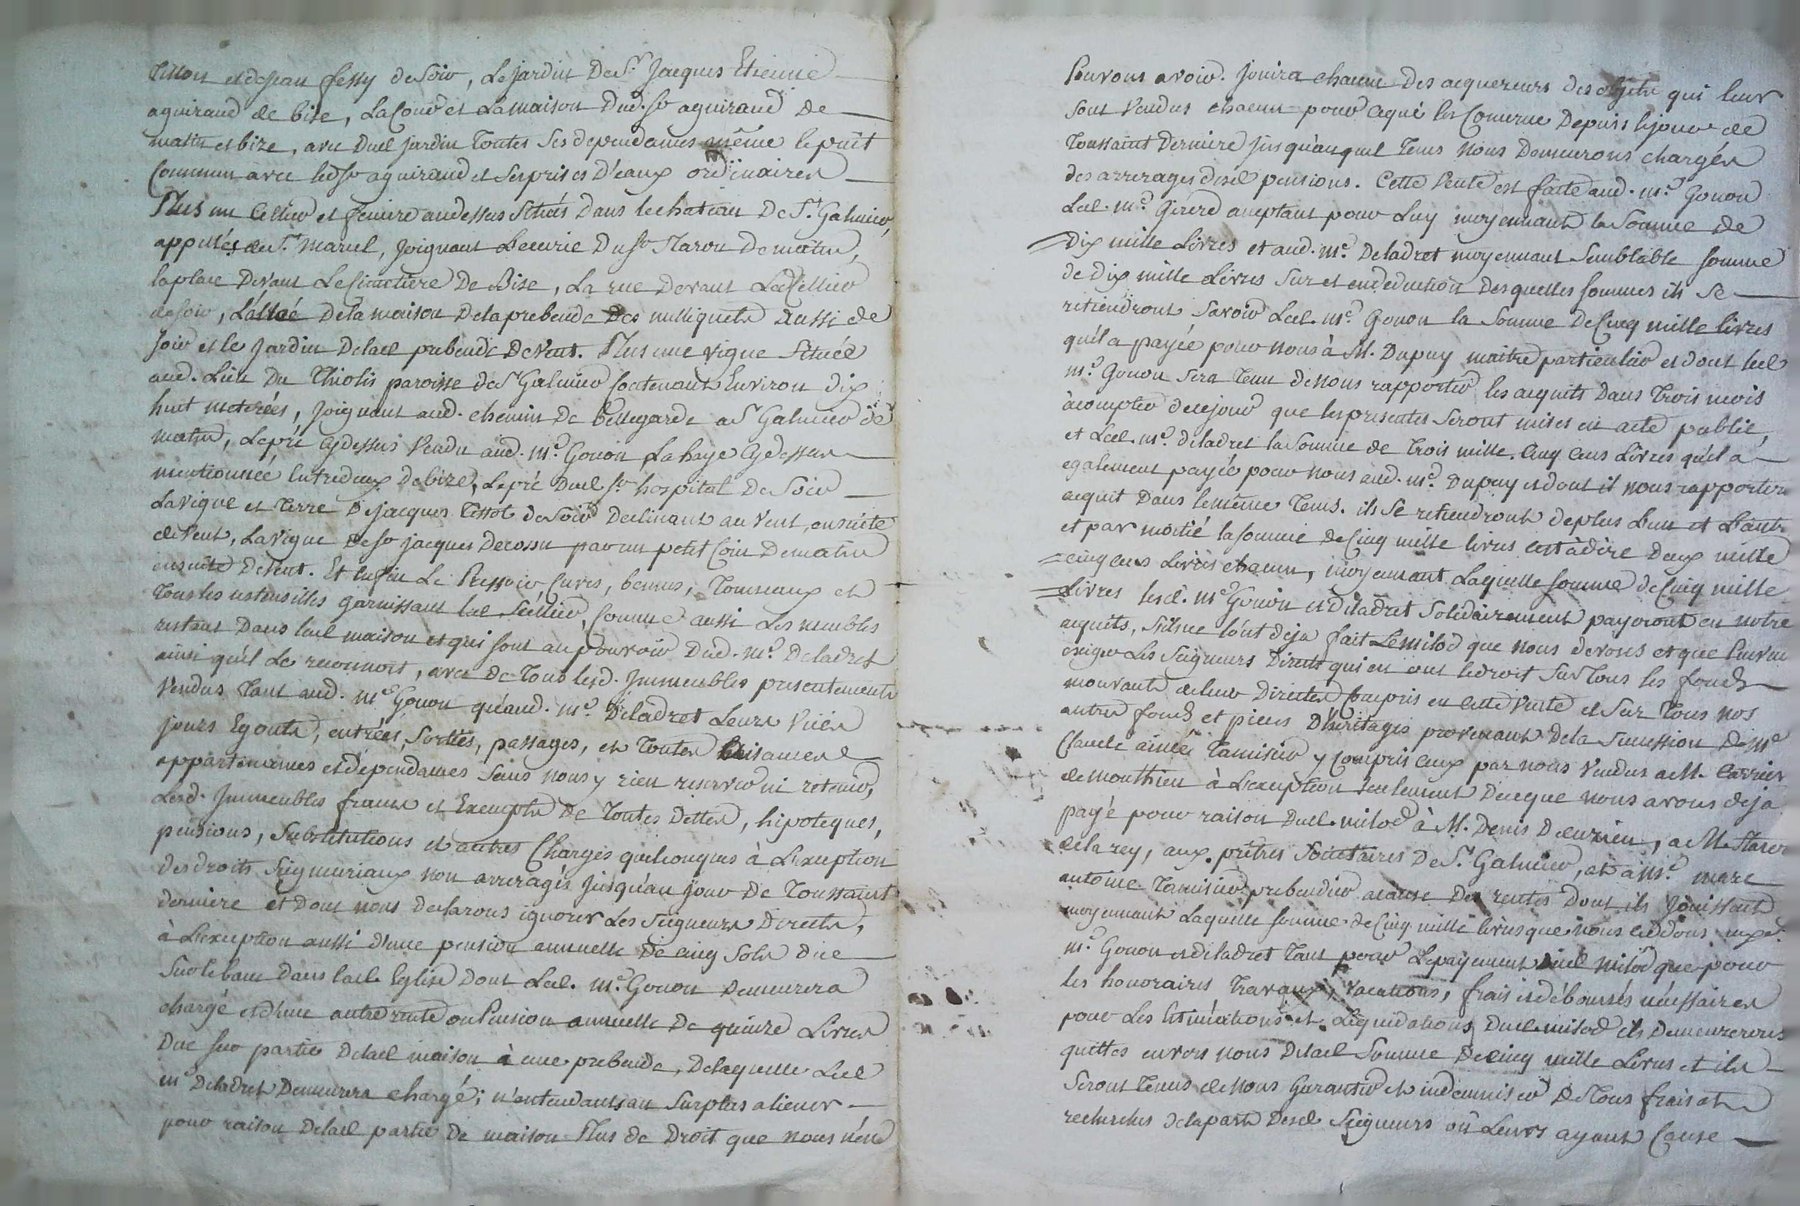 Tissot et de Jean fessy de soir, Le jardin De Sr. Jacques Etienne
aguiraud de bise, La Cour et La maison Dud. Sr aguiraud de
matin et bize, avec Dud. jardin Toutes Ses dependances même le puit
Commun avec led. Sr aguiraud et Ses prises d'eaux ordinaires
Plus un Cellier et feniere audessus Situés Dans le chateau De St. Galmier,
appellés du St. Marcel, Joignant L'ecurie Du Sr Maron De matin,
la place Devant Le Cimetiere De Bise, La rue Devant Led. Cellier
de soir, L'allée de la maison De la prebende Des mulliquets Aussi de
soir et le Jardin De lad. prebende De Vent. Plus une vigne Située
aud. Lieu Du Thiolis paroisse de St Galmier Contenant Environ dix
huit meterées, Joignant aud. chemin De bellegarde a St Galmier de
matin, Le pré Cy dessus Vendu aud. me. Gonon La haye Cy dessus
mentionnée Entredeux De bize, Le pré Dud. Sr hospital De Soir
La vigne et Terre De Jacques Tissot de Soir Declinant au Vent, ensuite
de Vent, La vigne de Sr Jacques Decossu par un petit Coin De matin
ensuite De Vent. Et Enfin Le Pressoir, Cuves, bennes, Tonneaux et
Tous les ustensilles garnissant led. Cellier, Comme aussi Les meubles
restant Dans lad. maison et qui sont au pouvoir Dud. me. Deladret
ainsi qu'il Le reconnoit, avec De Tous lesd. Immeubles presentement
Vendus Tant aud. me Gonon qu'aud. me. Deladret Leurs Vües
jours Egouts, entrées, Sorties, passages, et Toutes aisances
appartenances et dépendances Sans nous y rien reserver ni retenir,
Lesd. Immeubles francs et Exempts De Toutes Dettes, hipoteques,
pensions, Substitutions et autres Charges quelconques à L'exception
des droits Seigneuriaux non arreragés Jusqu'au jour De Toussaint
derniere et Dont nous declarons ignorer Les Seigneurs Directs,
à L'exception aussi D'une pension annuelle De cinq Sols Due
Sur le banc Dans lad. Eglise Dont Led. me. Gonon Demeurera
chargé et d'une autre rente ou Pension annuelle De quinze Livres
Due Sur partie De lad. maison à une prebende, De laquelle Led.
me Deladret Demeurera chargé; n'entendant au Surplus aliener
pour raison De lad. partie De maison Plus de Droit que nous n'en
Pouvons avoir. Jouira chacun Des acquereurs Des objets qui leur
Sont Vendus chacun pour Ce qui les Concerne Depuis le jour de
Toussaint Derniere Jusqu'auquel Tems Nous Demeurons chargés
des arrerages desd. pensions. Cette Vente est faite aud. me. Gonon
Led. me. Girerd acceptant pour Luy moyennant la Somme De
Dix mille Livres et aud. me. Deladret moyennant Semblable Somme
de Dix mille Livres Sur et en deduction Desquelles sommes ils Se
retiendront Savoir Led. me. Gonon la Somme De Cinq mille livres
qu'il a payée pour nous à M. Dupuy maitre particulier et dont led.
me. Gonon Sera Tenu De nous rapporter les acquits Dans Trois mois
à compter de ce jour que les presentes Seront mises en acte public,
et Led. me. Deladret la Somme de Trois mille Cinq Cens Livres qu'il a
egalement payée pour nous aud. me. Dupuy et dont il nous rapportera
acquit Dans le même Tems. ils Se retiendront De plus L'un et L'autre
et par moitié la Somme de Cinq mille livres c'est à dire Deux mille
cinq cens Livres chacun, moyennant Laquelle Somme de Cinq mille
Livres lesd. me Gonon et Deladret Solidairement payeront en notre
acquits, S'ils ne L'ont deja fait Le milod que nous devons et que Peuvent
exiger Les Seigneurs Directs qui en ont le droit Sur Tous les fonds
mouvants de leur Directes Compris en cette Vente et Sur Tous nos
autres fonds et pieces D'heritages provenants De la Succession De me.
Claude aimée Tamisier y Compris Ceux par nous Vendus a M. Carrier
de monthieu à L'exception Seulement De ce que nous avons deja
payé pour raison Dud. milod à M. Denis D'eurieu, a M. Staron
de la rey, aux prêtres Societaires De St Galmier, et à me. marc
antoine Tamisier prebendier a cause Des rentes Dont ils Jouissent
moyennant Laquelle Somme de Cinq mille livres que nous cedons auxd.
me. Gonon et Deladret Tant pour Le payement dud. milod que pour
les honoraires Travaux, Vacations, frais et déboursés nécessaires
pour Les Estimations et Liquidations Dud. milod ils Demeureront
quittes envers nous De lad. Somme De Cinq mille Livres et ils
Seront Tenus de Nous Garantir et indemniser De Tous frais et
recherches de la part Desd. Seigneurs ou Leurs ayant Cause